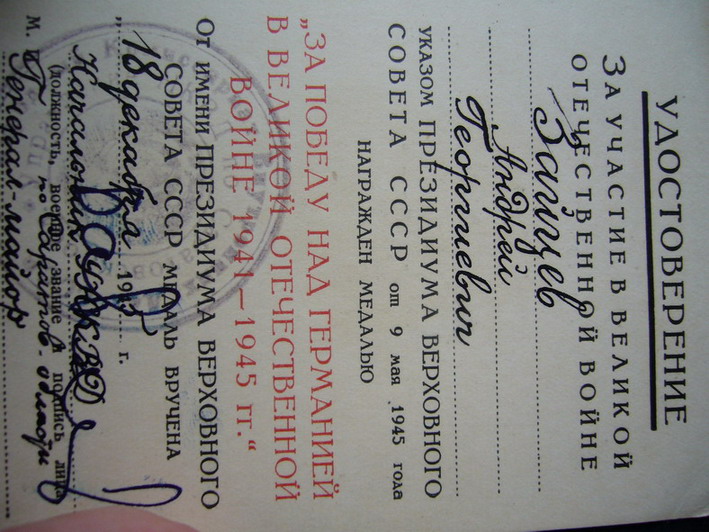 УДОСТОВЕРЕНИЕ
ЗА УЧАСТИЕ В ВЕЛИКОЙ
ОТЕЧЕСТВЕННОЙ ВОЙНЕ
Зайцев
Андрей
Георгиевич
УКАЗОМ ПРЕЗИДИУМА ВЕРХОВНОГО
СОВЕТА СССР от 9 мая 1945 года
НАГРАЖДЕН МЕДАЛЬЮ
„ЗА ПОБЕДУ НАД ГЕРМАНИЕЙ
В ВЕЛИКОЙ ОТЕЧЕСТВЕННОЙ
ВОЙНЕ 1941—1945 гг.“
От ИМЕНИ ПРЕЗИДИУМА ВЕРХОВНОГО
СОВЕТА СССР МЕДАЛЬ ВРУЧЕНА
„18 декабря 1945 г.
Начальник УНКВД
по Саратов. области
(должность, военное звание и подпись лица
М. П.
Генерал-майор